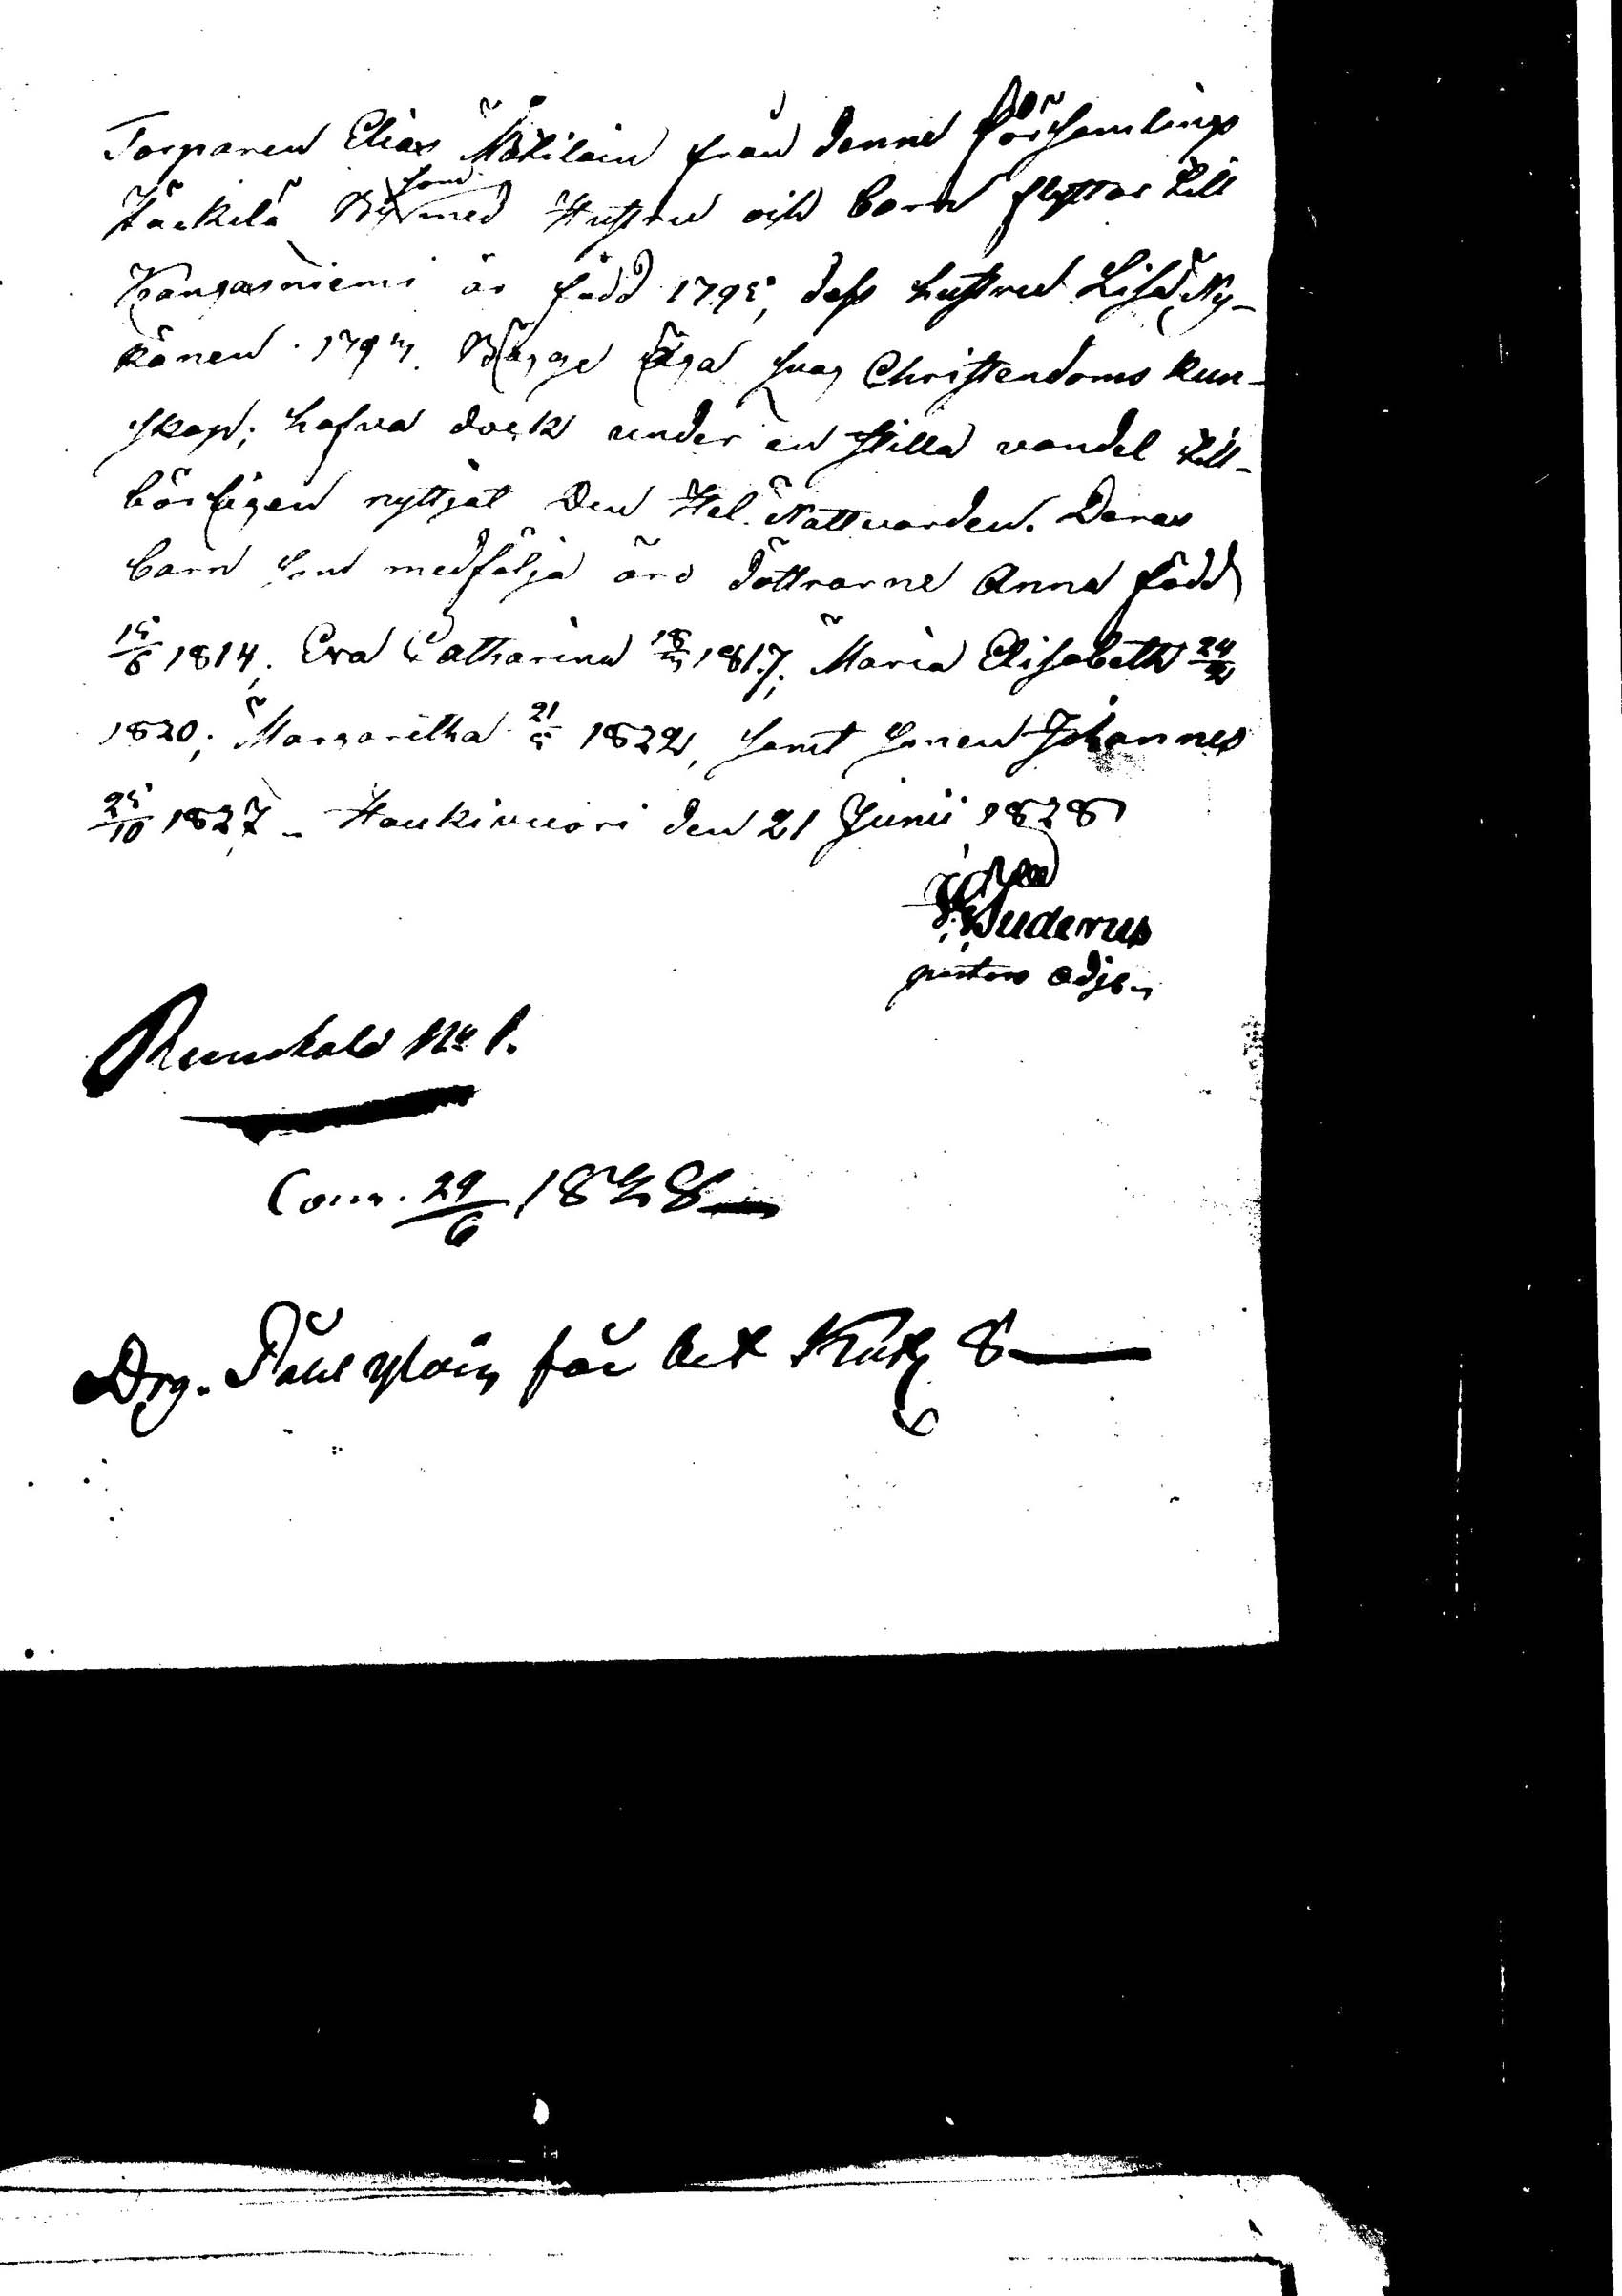 Torparen Elias Mötiläin från denne församlings
Jäckälä By som med Hustru och barn flyttar till
Kangasniemi är född 1795, dess hustru Lisa Ny-
känen 1797. Bägge äga svag Christendoms kun-
skap; hafva dock under en stilla vandel till-
börligen nyttjat Den Hel. Nattvarden. Deras
barn som medfölja äro döttrarne Anna född
15/6 1814, Eva Catharina 18/3 1817; Maria Elisabeth 24/2
1820; Margaretha 21/5 1822, samt sonen Johannes
25/10 1827 - Haukivuori den 21 Junii 1828
Judenius
pastors adj.
Runskald No 1.
Com. 29/6 1828
Drg. får 8